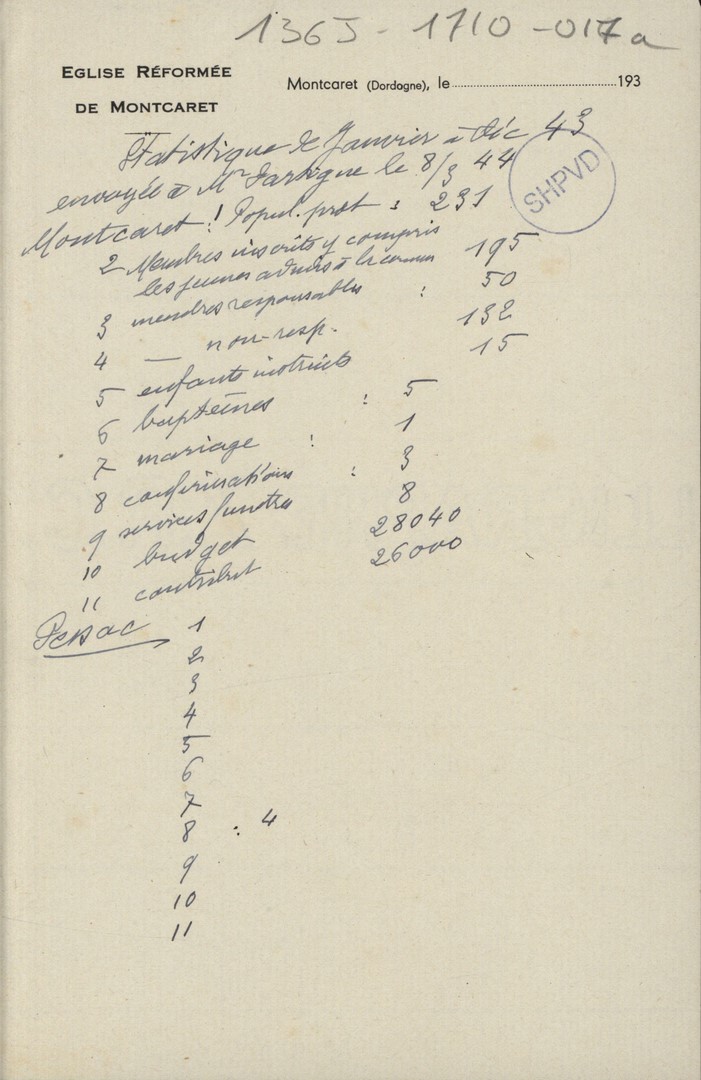 136J - 1710 - 017a
EGLISE RÉFORMÉE
DE MONTCARET
Montcaret (Dordogne), le 193
Statistique de Janvier à Déc 43
envoyée à Mr Lartigue le 8/3 44
SHPVD
Montcaret 1 Popul. prot : 231
2 Membres inscrits y compris
les jeunes admis à la comm 195
3 membres responsables : 50
4 — non-resp. 132
5 enfants instruits 15
6 baptêmes : 5
7 mariage : 1
8 confirmations : 3
9 services funèbres 8
10 budget 28040
11 contribut 26000
Pessac 1
2
3
4
5
6
7
8 : 4
9
10
11